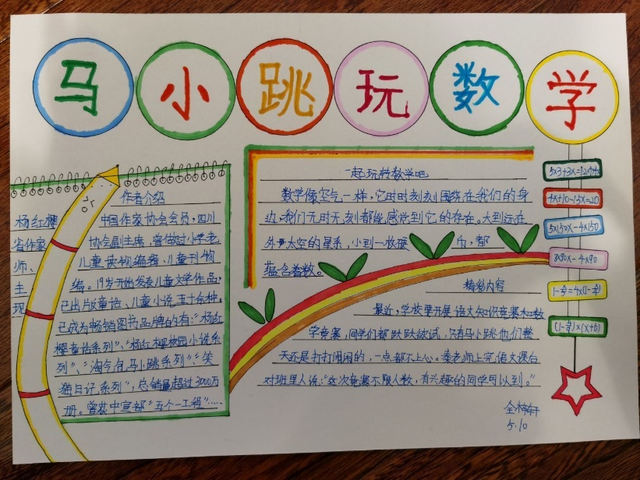 马小跳玩数学
作者介绍
杨红樱
中国作家协会会员,四川
省作家
协会副主席,曾做过小学老
师、
儿童读物编辑、儿童刊物
主
编。19岁开始发表儿童文学作品,
现
已出版童话、儿童小说五十余种,
已成为畅销图书品牌的有:“杨红
樱童话系列”、“杨红樱校园小说系
列”、“淘气包马小跳系列”、“笑
猫日记系列”,总销量超过3000万
册。曾获中宣部“五个一工程”……
一起玩转数学吧
数学像空气一样,它时时刻刻围绕在我们的身
边,我们无时无刻都能感觉到它的存在。大到远在
外太空的星系,小到一枚硬币,都
蕴含着数。
精彩内容
最近,学校里开展语文知识竞赛和数
学竞赛,同学们都跃跃欲试,只有马小跳他们整
天还是打打闹闹的,一点都不上心。秦老师上完语文课后
对班里人说:“这次竞赛不限人数,有兴趣的同学可以到。”
5.10